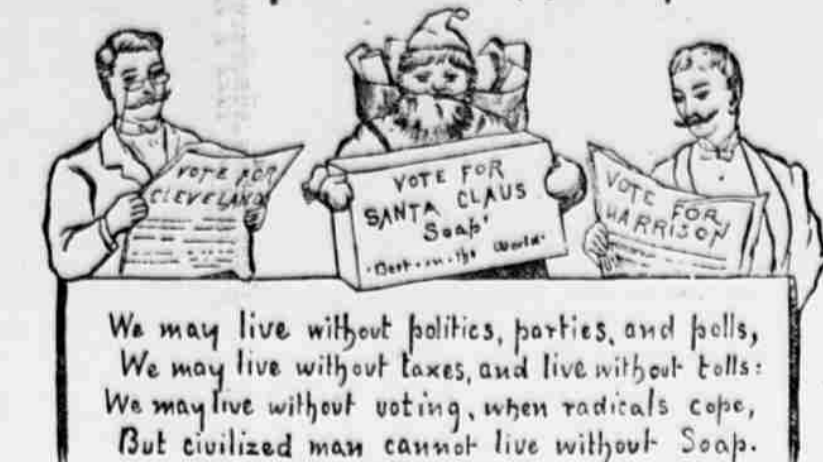 VOTE FOR
CLEVELAND
VOTE FOR
SANTA CLAUS
Soap'
·Best·in·the World·
VOTE FOR
HARRISON
We may live without politics, parties, and polls,
We may live without taxes, and live without tolls:
We may live without voting, when radicals cope,
But civilized man cannot live without Soap.